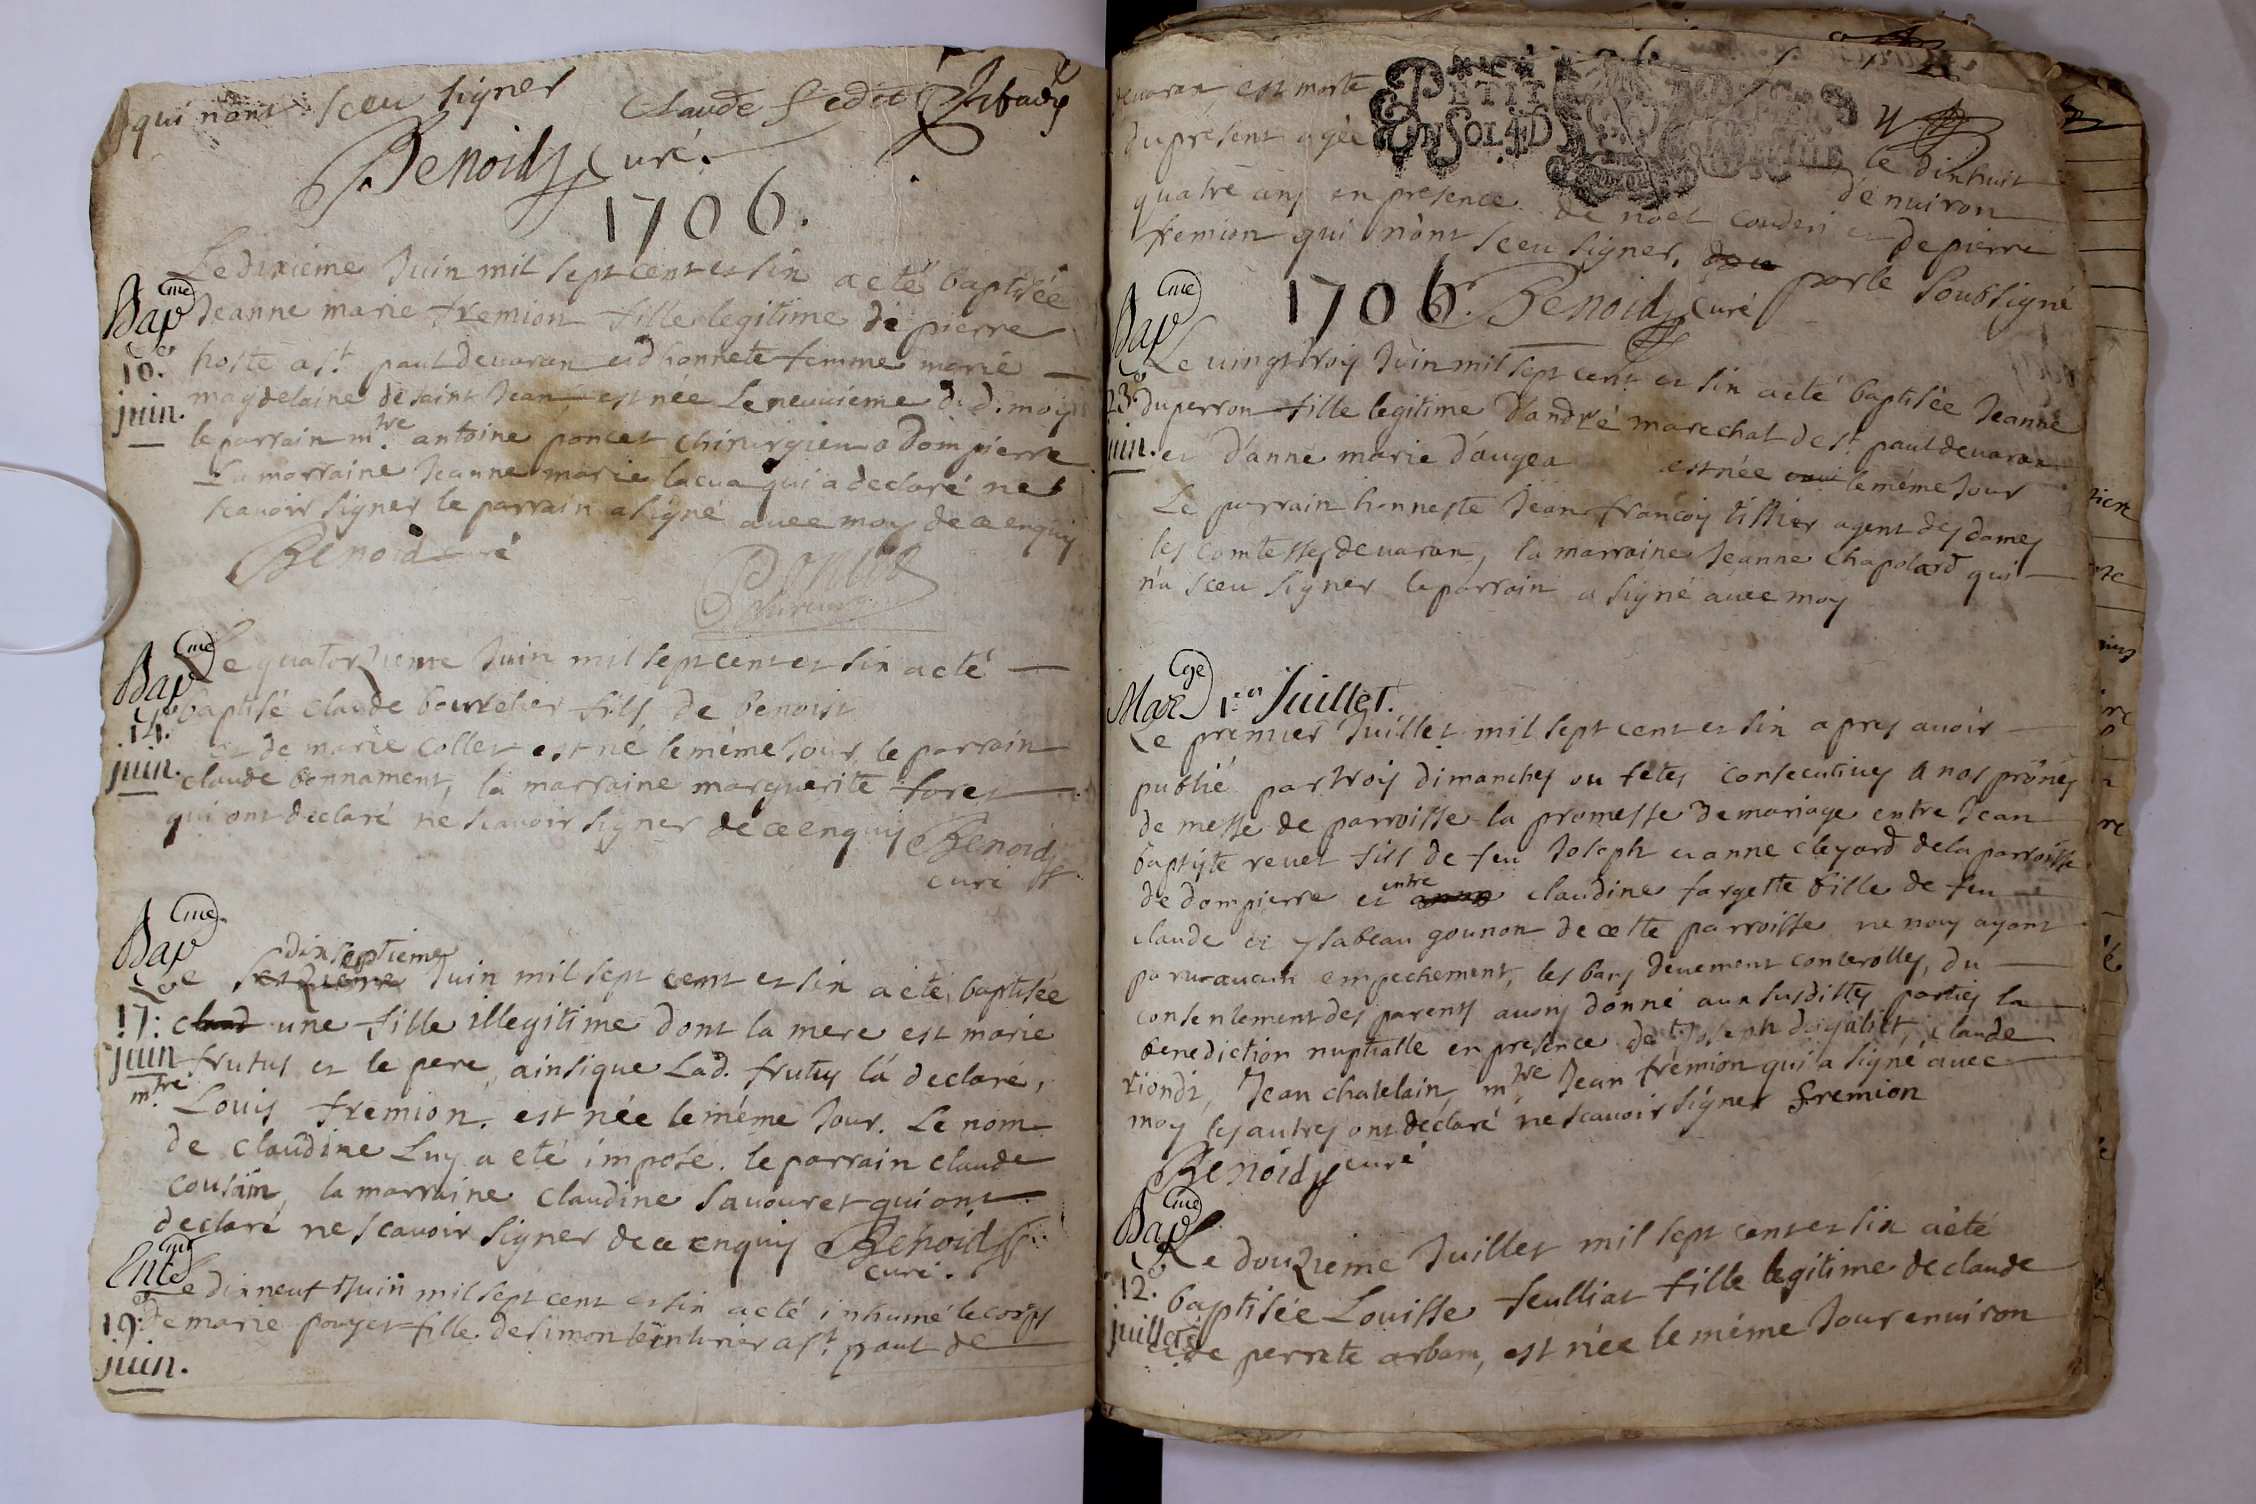 qui n'ont sceu signer Claude
Benoid curé.
1706.
Bap me
Le dixieme Juin mil sept cent et six a eté baptisée
Jeanne marie fremion fille legitime de pierre
10. hoste a st. paul de varan et d'honnete femme marie
juin. magdelaine de saint Jean, est née le neuvieme du d. moys
le parrain mtre antoine poncet chirurgien a Dompierre
La marraine Jeanne marie lacua qui a declaré ne
scavoir signer le parrain a signé avec moy de ce enquis
Benoid curé
Bap me
Le quatorzieme Juin mil sept cent et six a eté
baptisé claude bourrelier fils de benoist
14. et de marie collet est né le méme Jour, le parrain
juin. claude bonnament, la marraine marguerite foret
qui ont declaré ne scavoir signer de ce enquis Benoid
curé
Bap me
dixseptieme
Le Juin mil sept cent et six a eté baptisée
17. une fille illegitime dont la mere est marie
juin frutus et le pere, ainsi que Lad. frutus l'a declaré,
mtre Louis fremion. est née le méme Jour. Le nom
de claudine Luy a eté imposé. le parrain claude
cousin, la marraine claudine savouret qui ont
declaré ne scavoir signer de ce enquis Benoid
curé.
Le dixneuf Juin mil sept cent et six a eté inhumé le corps
19. de marie pouget fille de simon teinturier a st. paul de
juin.
varan, est morte PETIT
du present agée EN SOL 4 D le dixhuit
d'environ
quatre ans en presence de noel couderi et de pierre
fremion qui n'ont sceu signer, par le soubsigné
1706. Benoid curé
Bap me
Le vingt trois Juin mil sept cent et six a eté baptisée Jeanne
23 duperron fille legitime d'andré marechal de st. paul de varan
juin. et d'anne marie d'augea est née le méme Jour
Le parrain honneste Jean francois tissier agent des dames
les comtesses de varan, la marraine Jeanne Chapolard qui
n'a sceu signer le parrain a signé avec moy
Mar ge 1er Juillet.
Le premier Juillet mil sept cent et six apres avoir
publié par trois dimanches ou fetes consecutives a nos prônes
de messe de parroisse la promesse de mariage entre Jean
baptiste revet fils de feu Joseph et anne cleyard de la parroisse
entre
de dompierre et claudine fargette fille de feu
claude et ysabeau gounon de cette parroisse ne nous ayant
paru aucun empechement, les bans deuement conterolles, du
consentement des parents avons donné aux susdittes parties la
benediction nuptialle en presence de Joseph claude
riondi, Jean chatelain, mtre Jean fremion qui a signé avec
moy les autres ont déclaré ne scavoir signer fremion
Benoid curé
Bap me
Le douzieme Juillet mil sept cent et six a été
12. baptisée Louisse feulliat fille legitime de claude
juillet et de perrete arbam, est née le méme Jour environ